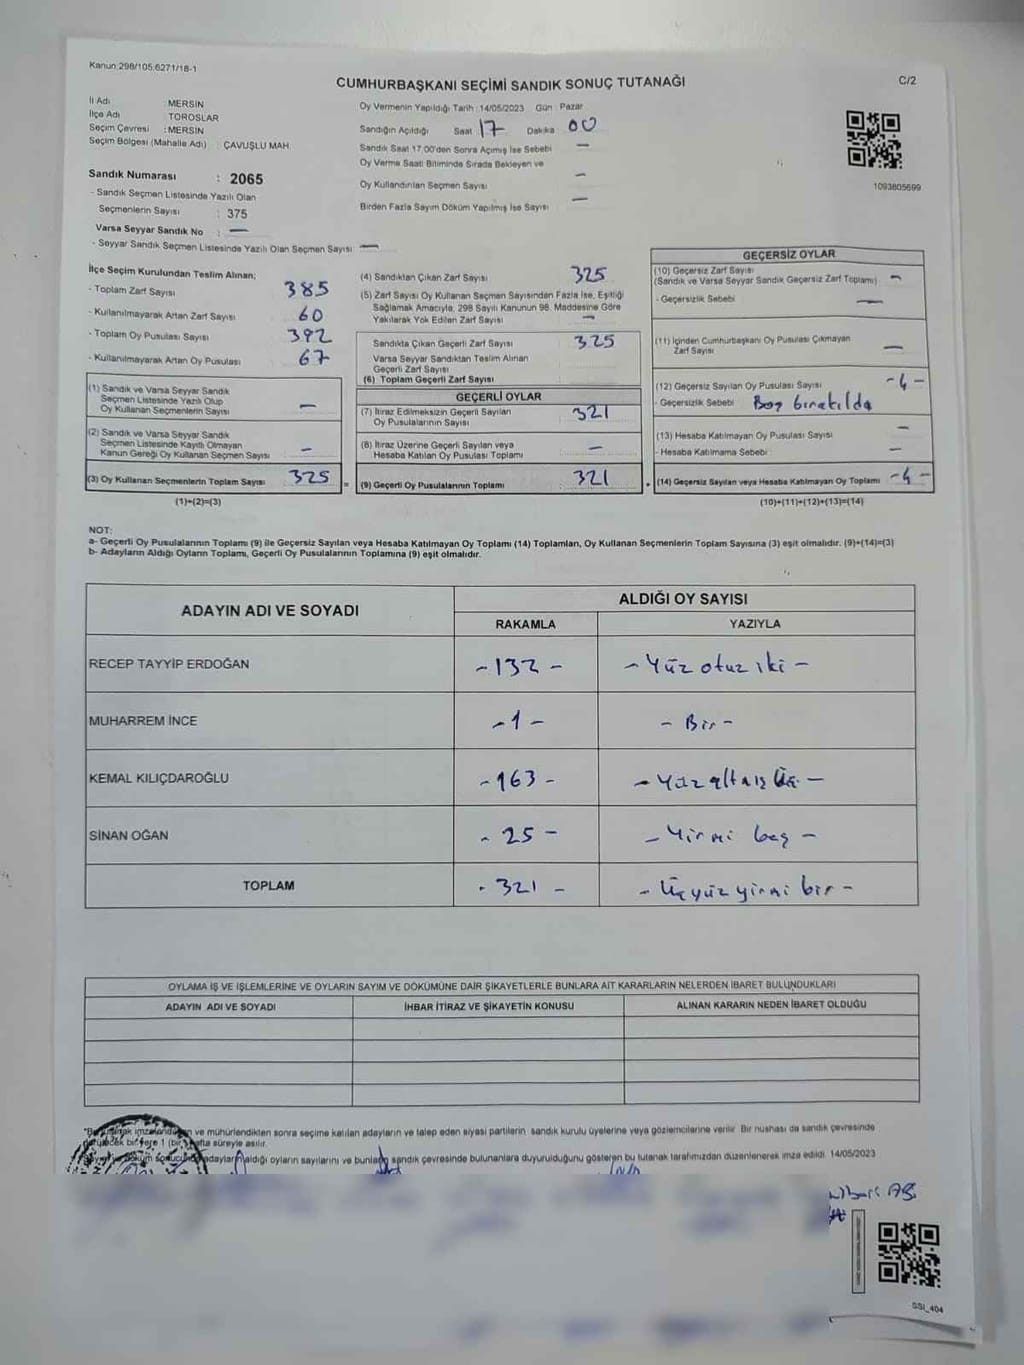 Kanun:298/105.6271/18-1
CUMHURBAŞKANI SEÇİMİ SANDIK SONUÇ TUTANAĞI
C/2
İl Adı : MERSİN
İlçe Adı TOROSLAR
Seçim Çevresi : MERSİN
Seçim Bölgesi (Mahalle Adı) : ÇAVUŞLU MAH.
Sandık Numarası : 2065
- Sandık Seçmen Listesinde Yazılı Olan
Seçmenlerin Sayısı : 375
Varsa Seyyar Sandık No : —
- Seyyar Sandık Seçmen Listesinde Yazılı Olan Seçmen Sayısı : —
Oy Vermenin Yapıldığı Tarih : 14/05/2023 Gün : Pazar
Sandığın Açıldığı Saat 17 Dakika 00
Sandık Saat 17.00'den Sonra Açılmış İse Sebebi —
Oy Verme Saati Bitiminde Sırada Bekleyen ve
Oy Kullandırılan Seçmen Sayısı —
Birden Fazla Sayım Döküm Yapılmış İse Sayısı —
1093805699
İlçe Seçim Kurulundan Teslim Alınan;
- Toplam Zarf Sayısı 385
- Kullanılmayarak Artan Zarf Sayısı 60
- Toplam Oy Pusulası Sayısı 392
- Kullanılmayarak Artan Oy Pusulası 67
(1) Sandık ve Varsa Seyyar Sandık
Seçmen Listesinde Yazılı Olup
Oy Kullanan Seçmenlerin Sayısı —
(2) Sandık ve Varsa Seyyar Sandık
Seçmen Listesinde Kayıtlı Olmayan
Kanun Gereği Oy Kullanan Seçmen Sayısı —
(3) Oy Kullanan Seçmenlerin Toplam Sayısı 325 =
(1)+(2)=(3)
(4) Sandıktan Çıkan Zarf Sayısı 325
(5) Zarf Sayısı Oy Kullanan Seçmen Sayısından Fazla İse, Eşitliği
Sağlamak Amacıyla, 298 Sayılı Kanunun 98. Maddesine Göre
Yakılarak Yok Edilen Zarf Sayısı —
Sandıkta Çıkan Geçerli Zarf Sayısı 325
Varsa Seyyar Sandıktan Teslim Alınan
Geçerli Zarf Sayısı
(6) Toplam Geçerli Zarf Sayısı
GEÇERLİ OYLAR
(7) İtiraz Edilmeksizin Geçerli Sayılan
Oy Pusulalarının Sayısı 321
(8) İtiraz Üzerine Geçerli Sayılan veya
Hesaba Katılan Oy Pusulası Toplamı —
(9) Geçerli Oy Pusulalarının Toplamı 321 +
GEÇERSİZ OYLAR
(10) Geçersiz Zarf Sayısı
(Sandık ve Varsa Seyyar Sandık Geçersiz Zarf Toplamı) —
- Geçersizlik Sebebi —
(11) İçinden Cumhurbaşkanı Oy Pusulası Çıkmayan
Zarf Sayısı —
(12) Geçersiz Sayılan Oy Pusulası Sayısı -4-
- Geçersizlik Sebebi Boş bırakılda
(13) Hesaba Katılmayan Oy Pusulası Sayısı —
- Hesaba Katılmama Sebebi —
(14) Geçersiz Sayılan veya Hesaba Katılmayan Oy Toplamı -4-
(10)+(11)+(12)+(13)=(14)
NOT:
a- Geçerli Oy Pusulalarının Toplamı (9) ile Geçersiz Sayılan veya Hesaba Katılmayan Oy Toplamı (14) Toplamları, Oy Kullanan Seçmenlerin Toplam Sayısına (3) eşit olmalıdır. (9)+(14)=(3)
b- Adayların Aldığı Oyların Toplamı, Geçerli Oy Pusulalarının Toplamına (9) eşit olmalıdır.
ADAYIN ADI VE SOYADI ALDIĞI OY SAYISI
RAKAMLA YAZIYLA
RECEP TAYYİP ERDOĞAN -132- - Yüz otuz iki -
MUHARREM İNCE -1- - Bir -
KEMAL KILIÇDAROĞLU -163- - Yüz altmış üç -
SİNAN OĞAN -25- - Yirmi beş -
TOPLAM -321- - Üçyüz yirmi bir -
OYLAMA İŞ VE İŞLEMLERİNE VE OYLARIN SAYIM VE DÖKÜMÜNE DAİR ŞİKAYETLERLE BUNLARA AİT KARARLARIN NELERDEN İBARET BULUNDUKLARI
ADAYIN ADI VE SOYADI İHBAR İTİRAZ VE ŞİKAYETİN KONUSU ALINAN KARARIN NEDEN İBARET OLDUĞU
ve mühürlendikten sonra seçime katılan adayların ve talep eden siyasi partilerin sandık kurulu üyelerine veya gözlemcilerine verilir. Bir nushası da sandık çevresinde
bir yere 1 (bir) hafta süreyle asılır.
adayların aldığı oyların sayılarını ve bunların sandık çevresinde bulunanlara duyurulduğunu gösteren bu tutanak tarafımızdan düzenlenerek imza edildi. 14/05/2023
SSI_404